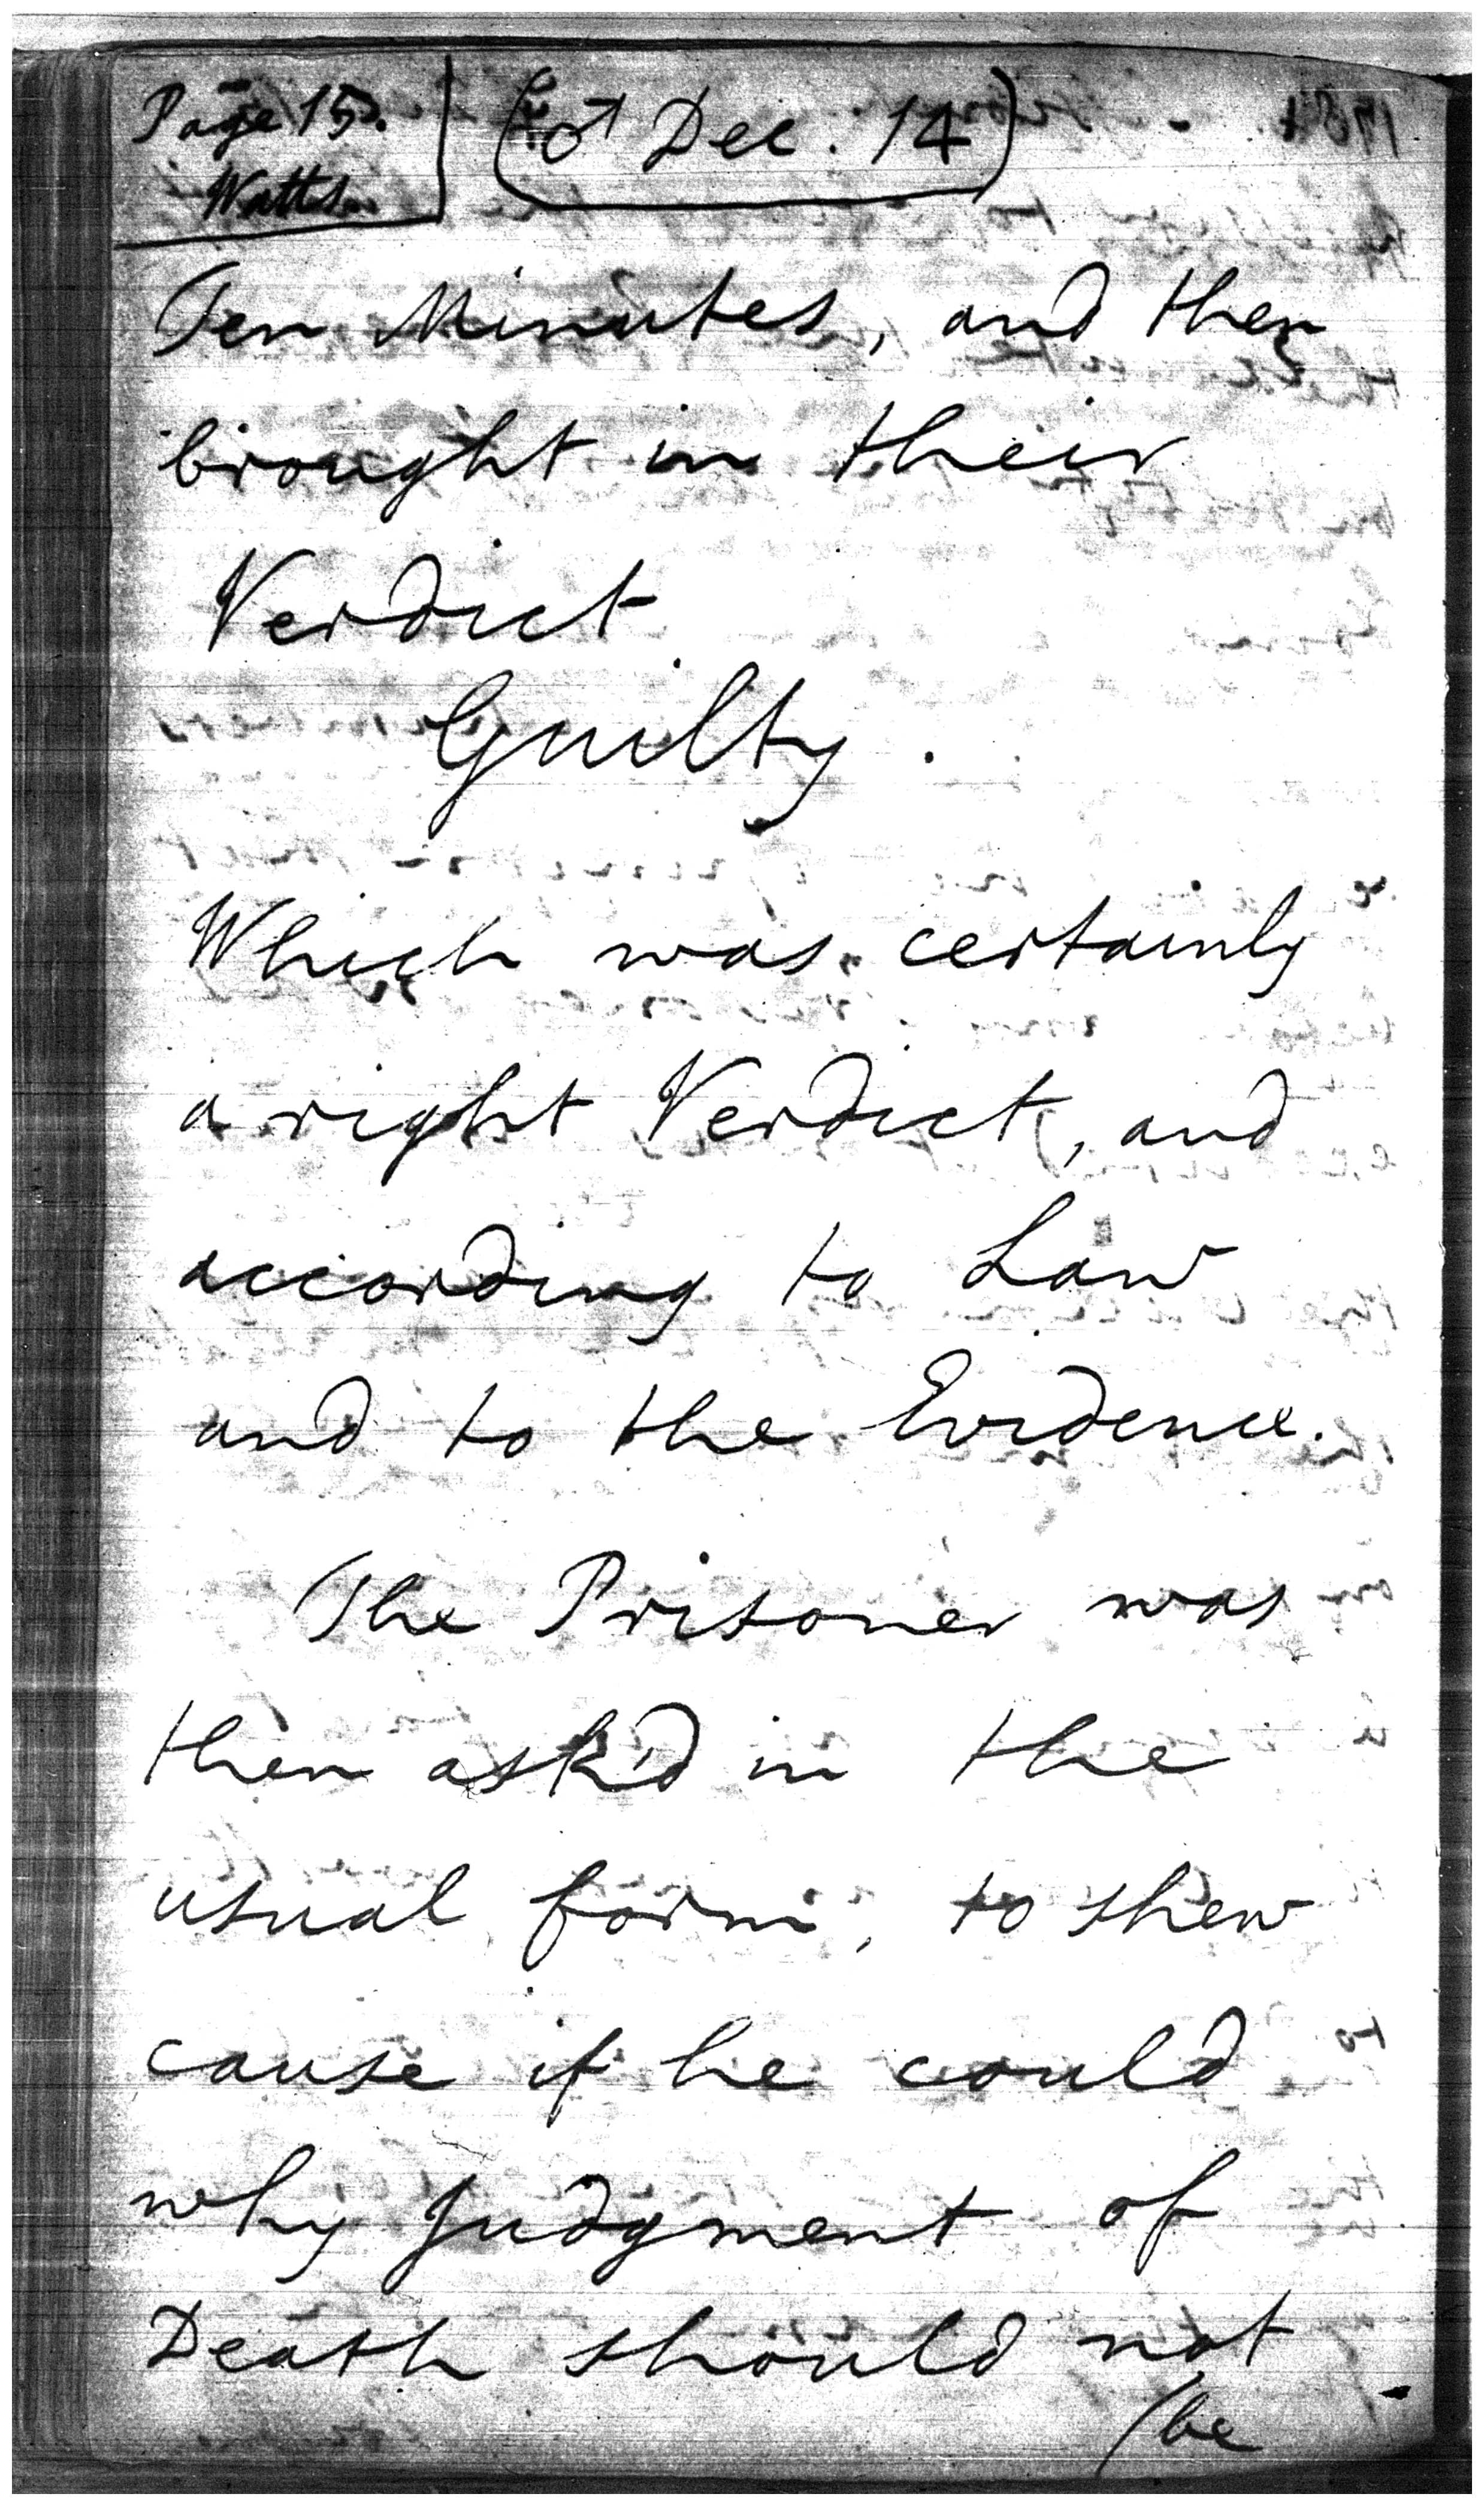 Page 15.
Watts.
(♂ Dec. 14)
Ten Minutes, and then
brought in their
Verdict
Guilty.
Which was certainly
a right Verdict, and
according to Law
and to the Evidence.
The Prisoner was
then ask'd in the
usual form, to shew
cause if he could
why Judgment of
Death should not
(be